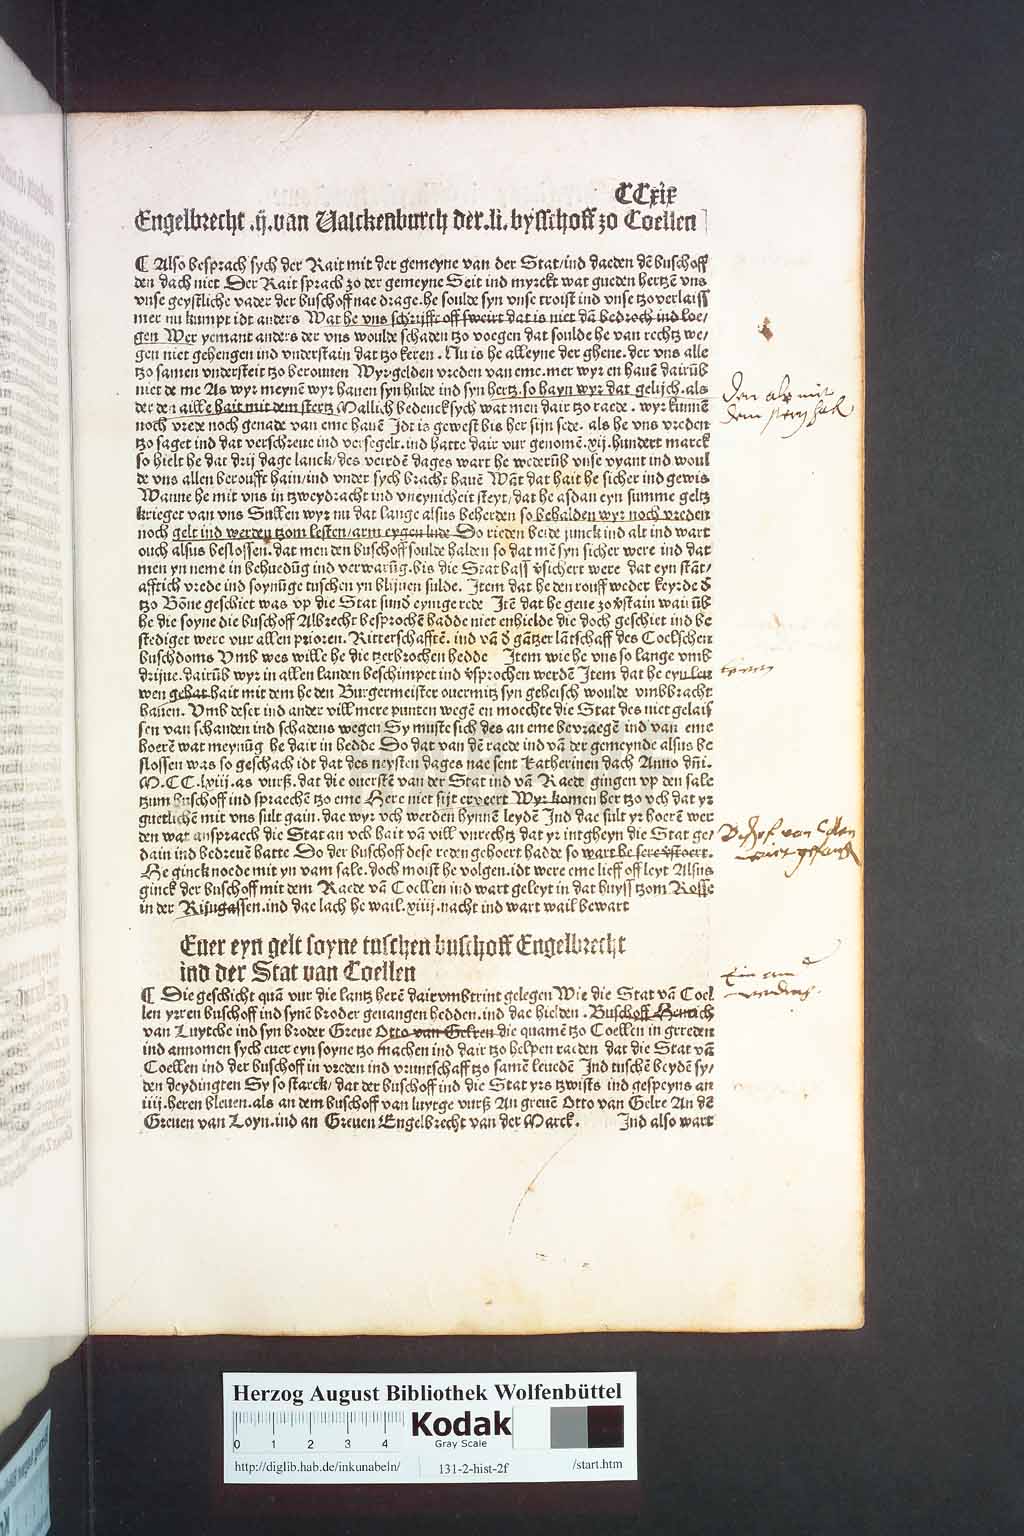 CCxix
Engelbrecht .ij. van Valckenburch der .li. bysschoff zo Coellen
¶ Also besprach sych der Rait mit der gemeyne van der Stat/ind daeden dē buschoff
den dach niet Der Rait sprach zo der gemeyne Seit ind myrckt wat gueden hertzē vns
vnse geystliche vader der buschoff nae drage. he soulde syn vnse troist ind vnse tzoverlaiſſ
mer nu kumpt idt anders Wat he vns schrijfft off sweirt dat is niet dā bedroch ind loe/
gen Wer yemant anders der vns woulde schaden tzo voegen dat soulde he van rechtz we/
gen niet gehengen ind vnderstain dat tzo keren. Nu is he alleyne der ghene. der vns alle
tzo samen vndersteit tzo berouuen Wyr gelden vreden van eme. mer wyr en hauē dairūb
niet de me As wyr meynē wyr hauen syn hulde ind syn hertz. so hayn wyr dat gelijch. als
der den ailke hait mit dem stertz Mallich bedenck sych wat men dair tzo raede. wyr kunnē
noch vrede noch genade van eme hauē Idt is gewest bis her sijn sede. als he vns vreden
tzo saget ind dat verschreue ind versegelt. ind hatte dair vur genomē .xij. hundert marck
so hielt he dat drij dage lanck/des veirdē dages wart he wederūb vnse vyant ind woul
de vns allen beroufft hain/ind vnder sych bracht hauē Wāt dat hait he sicher ind gewis
Wanne he mit vns in tzweydracht ind vneynicheit steyt/dat he asdan eyn summe geltz
krieget van vns Sullen wyr nu dat lange alsus beherden so behalden wyr noch vreden
noch gelt ind werden tzom lesten/arm eygen lude Do rieden beide junck ind alt ind wart
ouch alsus beslossen. dat men den buschoff soulde halden so dat mē syn sicher were ind dat
men yn neme in behuedūg ind verwarūg. bis die Stat bass v̄sichert were dat eyn stāt/
afftich vrede ind soynūge tuschen yn blijuen sulde. Item dat he den rouff weder keyrde d̄
tzo Bōne geschiet was vp die Stat sund eynige rede Itē dat he geue zo v̄stain wair ūb
he die soyne die buschoff Albrecht besprochē hadde niet enhielde die doch geschiet ind be
stediget were vur allen prioren. Ritterschafftē. ind vā d̄ gātzer lātschaff des Coelschen
buschdoms Vmb wes wille he die tzerbrochen hedde Item wie he vns so lange vmb
drijue. dairūb wyr in allen landen beschimpet ind v̄sprochen werdē Item dat he eyn leu
wen gehat hait mit dem he den Burgermeister ouermitz syn geheisch woulde vmbbracht
hauen. Vmb deser ind ander vill mere punten wegē en moechte die Stat des niet gelais
sen van schanden ind schadens wegen Sy muste sich des an eme bevraegē ind van eme
hoerē wat meynūg he dair in hedde Do dat van dē raede ind vā der gemeynde alsus be
slossen was so geschach idt dat des neysten dages nae sent Katherinen dach Anno dn̄i.
M.CC.lviij. as vurß. dat die ouerstē van der Stat ind vā Raede gingen vp den sale
tzum Buschoff ind spraechē tzo eme Here niet sijt erveert Wyr komen her tzo vch dat yr
guetlichē mit vns sult gain. dae wyr vch werden bynnē leydē Ind dae sult yr hoerē wer
den wat anspraech die Stat an vch hait vā vill vnrechtz dat yr intgheyn die Stat ge/
dain ind bedreuē hatte Do der buschoff dese reden gehoert hadde so wart he sere v̄stoert.
He ginck noede mit yn vam sale. doch moist he volgen. idt were eme lieff off leyt Alsus
ginck der buschoff mit dem Raede vā Coellen ind wart geleyt in dat huyss tzom Rosse
in der Rijngassen. ind dae lach he wail .xiiij. nacht ind wart wail bewart
Euer eyn gelt soyne tuschen buschoff Engelbrecht
ind der Stat van Coellen
¶ Die geschicht quā vur die lantz herē dair vmbtrint gelegen Wie die Stat vā Coel
len yrren buschoff ind synē broder geuangen hedden. ind dae hielden. Buschoff Henrich
van Luytche ind syn broder Greue Otto van Gelren die quamē tzo Coellen in gereden
ind annomen sych euer eyn soyne tzo machen ind dair tzo helpen raeden dat die Stat vā
Coellen ind der buschoff in vreden ind vruntschaff tzo samē leuedē Ind tuschē beydē sy/
den deydingten Sy so starck/ dat der buschoff ind die Stat yrs tzwists ind gespeyns an
iiij. heren bleuen. als an dem buschoff van luytge vurß An greuē Otto van Gelre An dē
Greuen van Loyn. ind an Greuen Engelbrecht van der Marck. Ind also wart
Den alx mit
dem stertz hab
Bischof von Cöllen
wirt gefangen
Herzog August Bibliothek Wolfenbüttel
0 1 2 3 4
Kodak
Gray Scale
http://diglib.hab.de/inkunabeln/ 131-2-hist-2f /start.htm